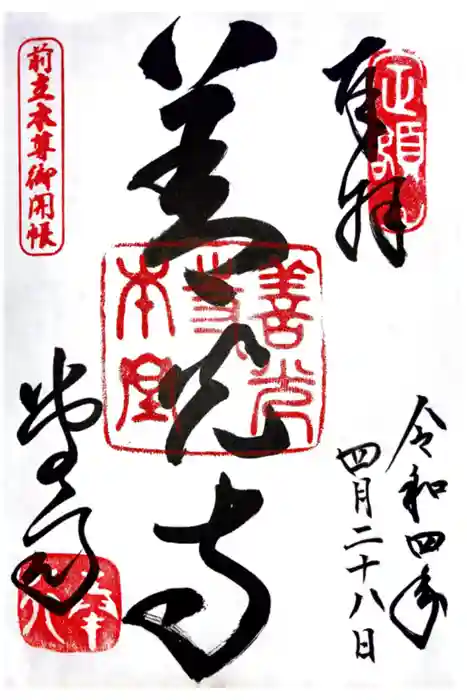 奉拝
正願
令和四年
四月二十八日
善光寺
善光寺
本堂
前立本尊御開帳
堂司
奉行